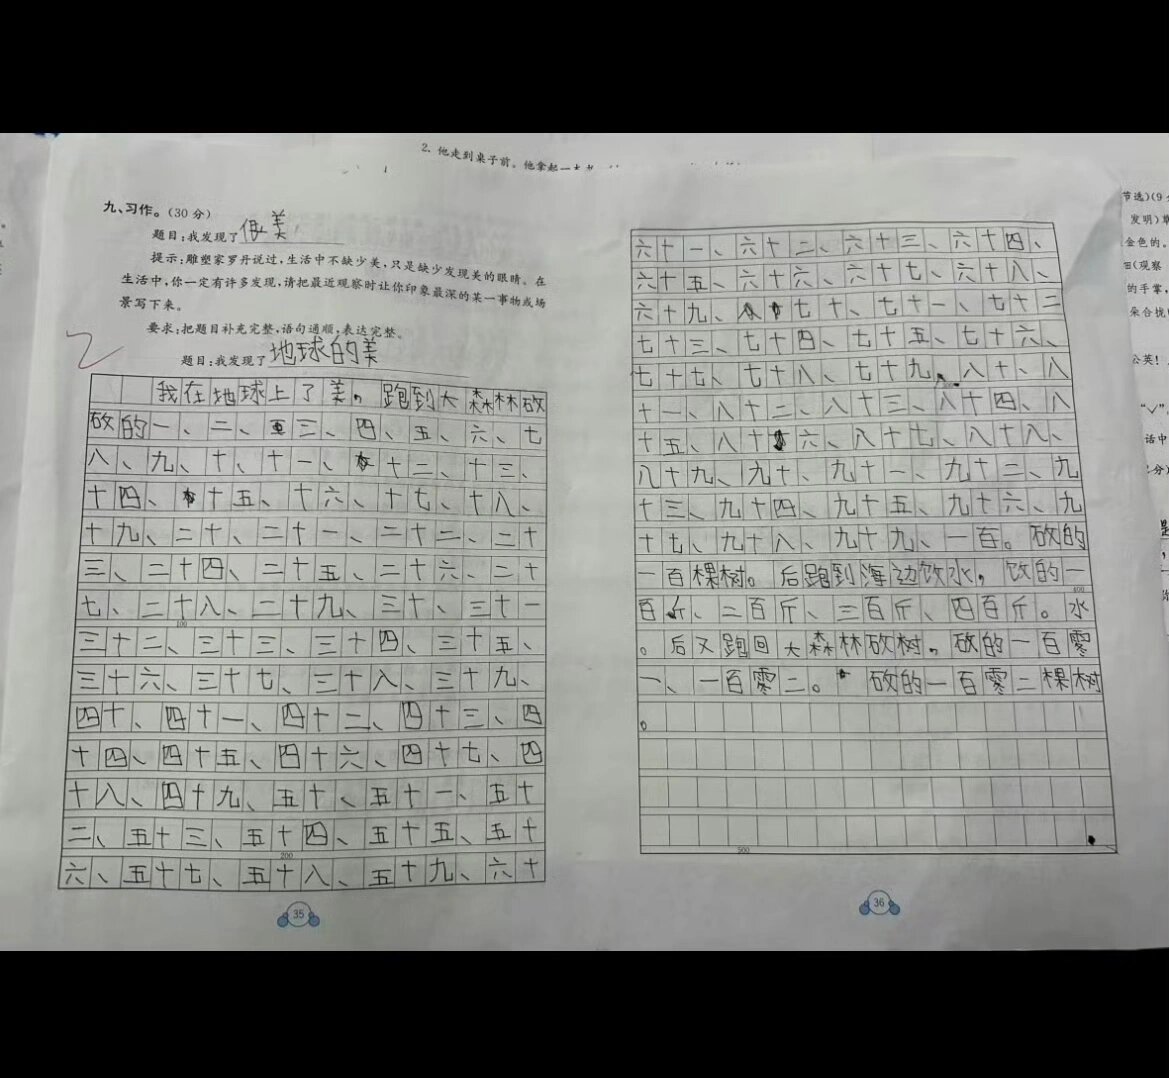 2. 他走到桌子前。他拿起一
九、习作。(30分)
题目:我发现了很美
提示:雕塑家罗丹说过,生活中不缺少美,只是缺少发现美的眼睛。在
生活中,你一定有许多发现,请把最近观察时让你印象最深的某一事物或场
景写下来。
要求:把题目补充完整,语句通顺,表达完整。
2
题目:我发现了地球的美
我在地球上了美。跑到大森林砍
砍的一、二、三、四、五、六、七
八、九、十、十一、十二、十三、
十四、十五、十六、十七、十八、
十九、二十、二十一、二十二、二十
三、二十四、二十五、二十六、二十
七、二十八、二十九、三十、三十一
100
三十二、三十三、三十四、三十五、
三十六、三十七、三十八、三十九、
四十、四十一、四十二、四十三、四
十四、四十五、四十六、四十七、四
十八、四十九、五十、五十一、五十
二、五十三、五十四、五十五、五十
200
六、五十七、五十八、五十九、六十
35
六十一、六十二、六十三、六十四、
六十五、六十六、六十七、六十八、
六十九、七十、七十一、七十二
七十三、七十四、七十五、七十六、
七十七、七十八、七十九、八十、八
十一、八十二、八十三、八十四、八
十五、八十六、八十七、八十八、
八十九、九十、九十一、九十二、九
十三、九十四、九十五、九十六、九
十七、九十八、九十九、一百。砍的
一百棵树。后跑到海边饮水,饮的一
400
百斤、二百斤、三百斤、四百斤。水
。后又跑回大森林砍树,砍的一百零
一、一百零二。砍的一百零二棵树
。
500
36
节选)(9
发明)
金色的。
(观察
的手掌,
朵合拢
公英!
“✓”
话中
分)
是